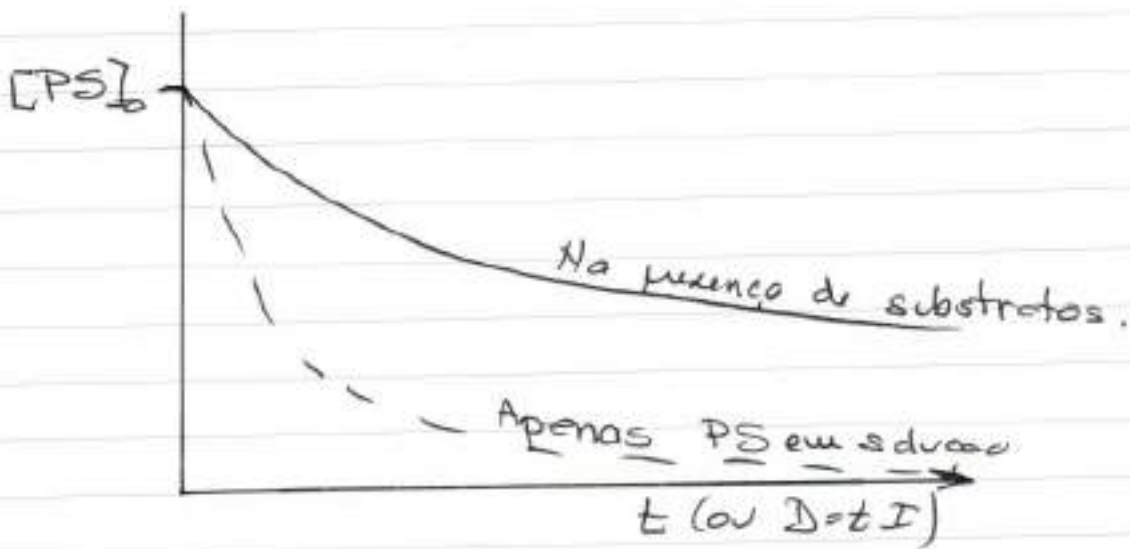 [PS]₀
Na presença de substratos.
Apenas PS em solução
t (ou D=tI)